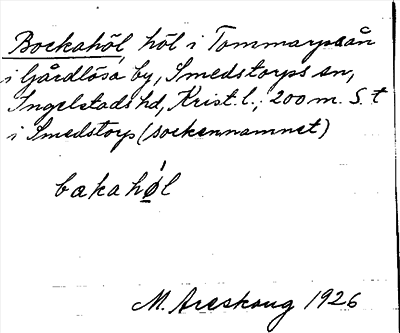 Bockahöl, höl i Tommarpsån
i Gårdlösa by, Smedstorps sn,
Ingelstads hd, Krist. l.; 200 m. S. t
i Smedstorp (sockennamnet)
bakahøl
M. Areskoug 1926